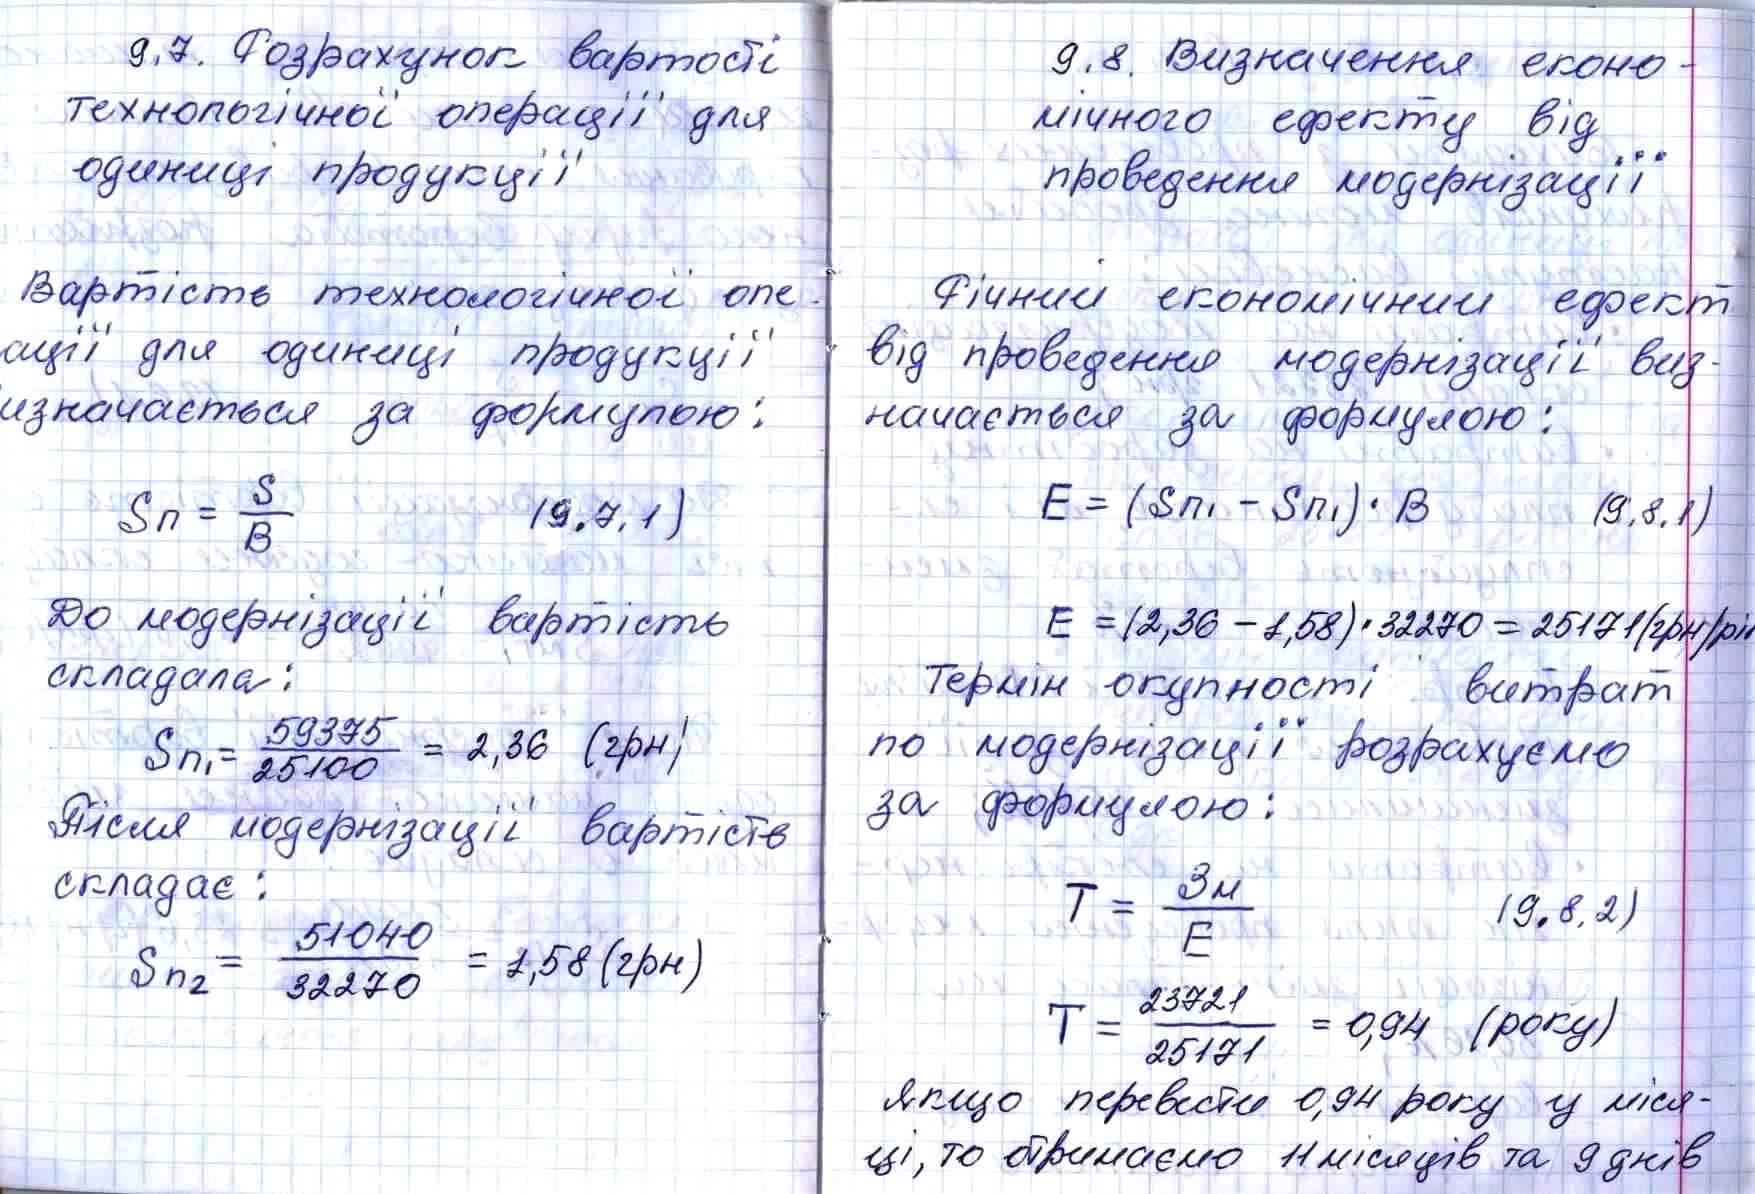 9.7. Розрахунок вартості
технологічної операції для
одиниці продукції
Вартість технологічної опе-
ації для одиниці продукції
изначається за формулою:
Sп = S/B (9.7.1)
До модернізації вартість
складала:
Sп₁ = 59375/25100 = 2,36 (грн)
Після модернізації вартість
складає:
Sп₂ = 51040/32270 = 1,58 (грн)
9.8. Визначення еконо-
мічного ефекту від
проведення модернізації
Річний економічний ефект
від проведення модернізації виз-
начається за формулою:
E = (Sп₁ - Sп₁) · B (9.8.1)
E = (2,36 - 1,58) · 32270 = 25171 (грн/рік
Термін окупності витрат
по модернізації розрахуємо
за формулою:
T = Зм/E (9.8.2)
T = 23721/25171 = 0,94 (року)
Якщо перевести 0,94 року у міся-
ці, то отримаємо 11 місяців та 9 днів